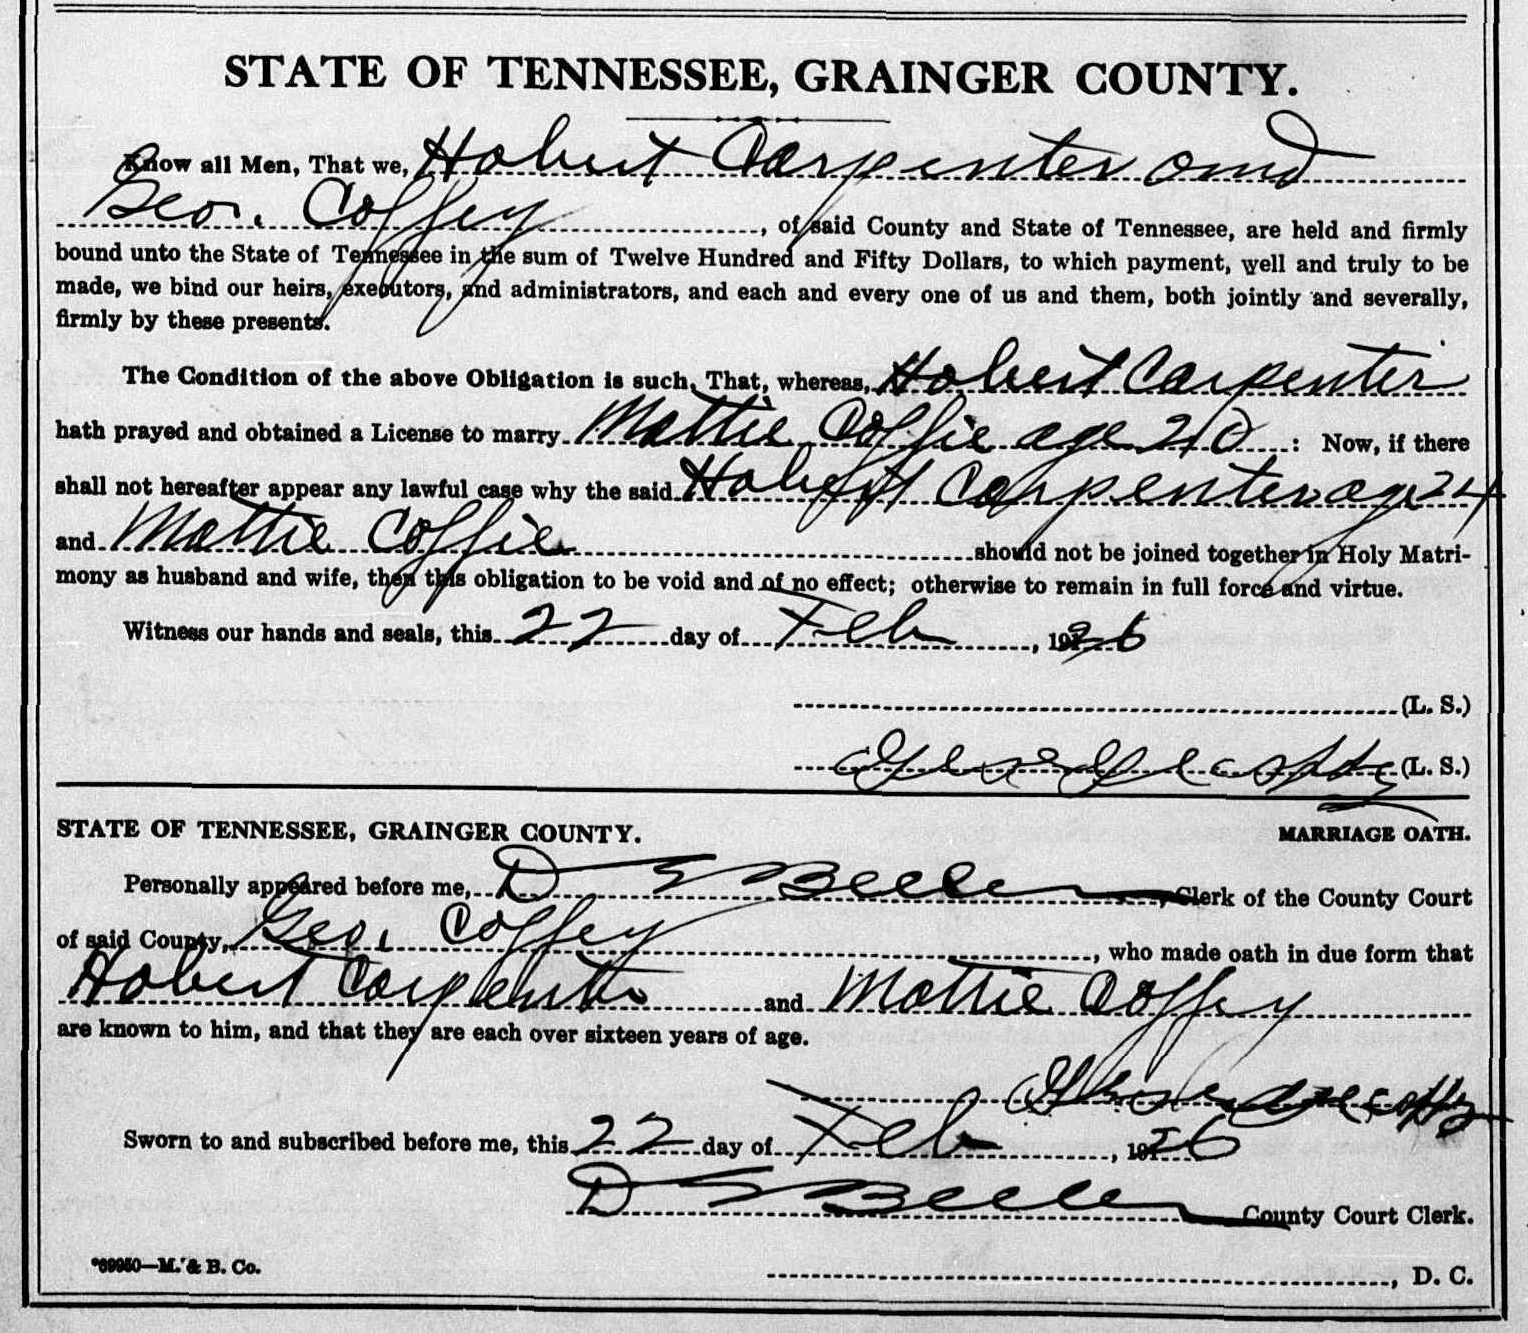 STATE OF TENNESSEE, GRAINGER COUNTY.
Know all Men, That we, Hobert Carpenter and
Geo. Coffey, of said County and State of Tennessee, are held and firmly
bound unto the State of Tennessee in the sum of Twelve Hundred and Fifty Dollars, to which payment, well and truly to be
made, we bind our heirs, executors, and administrators, and each and every one of us and them, both jointly and severally,
firmly by these presents.
The Condition of the above Obligation is such, That, whereas, Hobert Carpenter
hath prayed and obtained a License to marry Mattie Coffie age 20: Now, if there
shall not hereafter appear any lawful case why the said Hobert Carpenter age 24
and Mattie Coffie should not be joined together in Holy Matri-
mony as husband and wife, then this obligation to be void and of no effect; otherwise to remain in full force and virtue.
Witness our hands and seals, this 22 day of Feb, 1926
(L. S.)
(L. S.)
STATE OF TENNESSEE, GRAINGER COUNTY. MARRIAGE OATH.
Personally appeared before me, D Beeler, Clerk of the County Court
of said County, Geo. Coffey, who made oath in due form that
Hobert Carpenter and Mattie Coffey
are known to him, and that they are each over sixteen years of age.
Sworn to and subscribed before me, this 22 day of Feb, 1926
D Beeler County Court Clerk.
*69950—M. & B. Co.
, D. C.